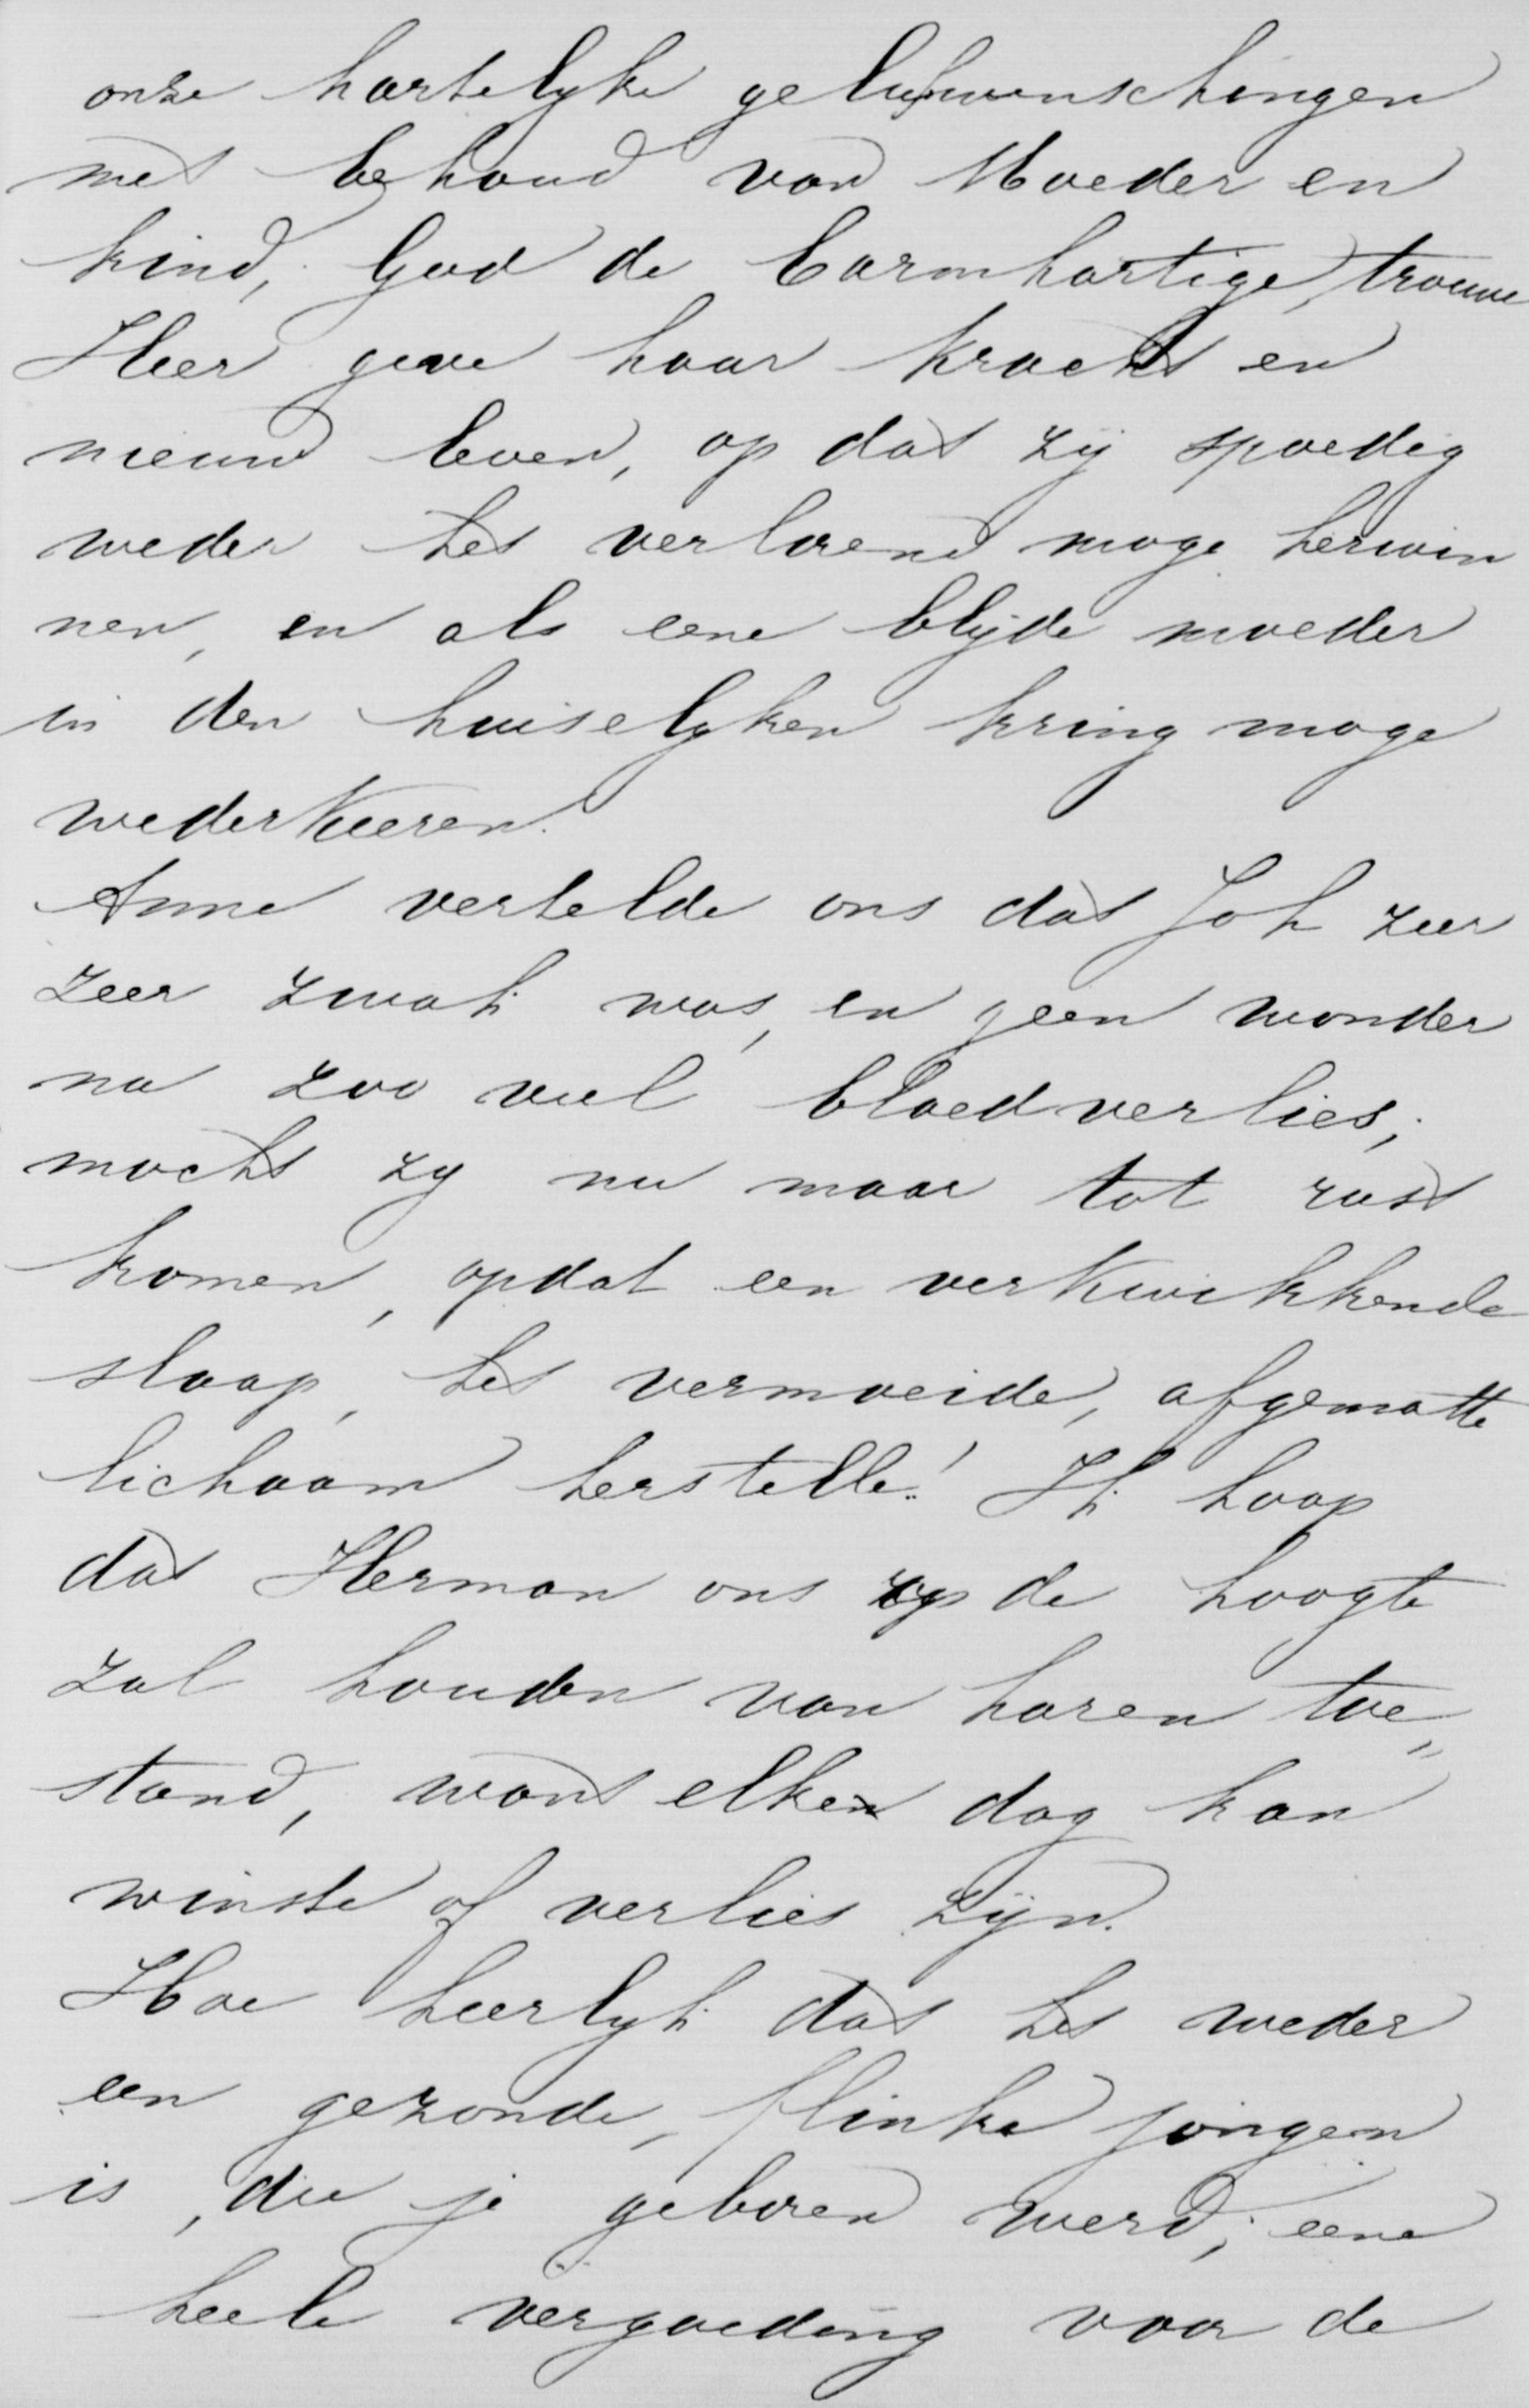 onze hartelyke gelukwenschingen
met behoud van Moeder en
kind, God de barmhartige, trouwe
Heer geve haar kracht en
nieuw leven, op dat zij spoedig
weder het verloren moge herwin
nen, en als eene blijde moeder
in den huiselyken kring moge
wederkeeren.
Anne vertelde ons dat Joh zeer
zeer zwak was, en geen wonder
na zoo veel bloedverlies;
mocht zy nu maar tot rust
komen, opdat een verkwikkende
slaap, het vermoeide, afgematte
lichaam herstelle! Ik hoop
dat Herman ons op de hoogte
zal houden van haren toe„
stand, want elken dag kan
winste of verlies zijn.
Hoe heerlyk dat het weder
een gezonde, flinke jongen
is, die je geboren werd; eene
heele vergoeding voor de